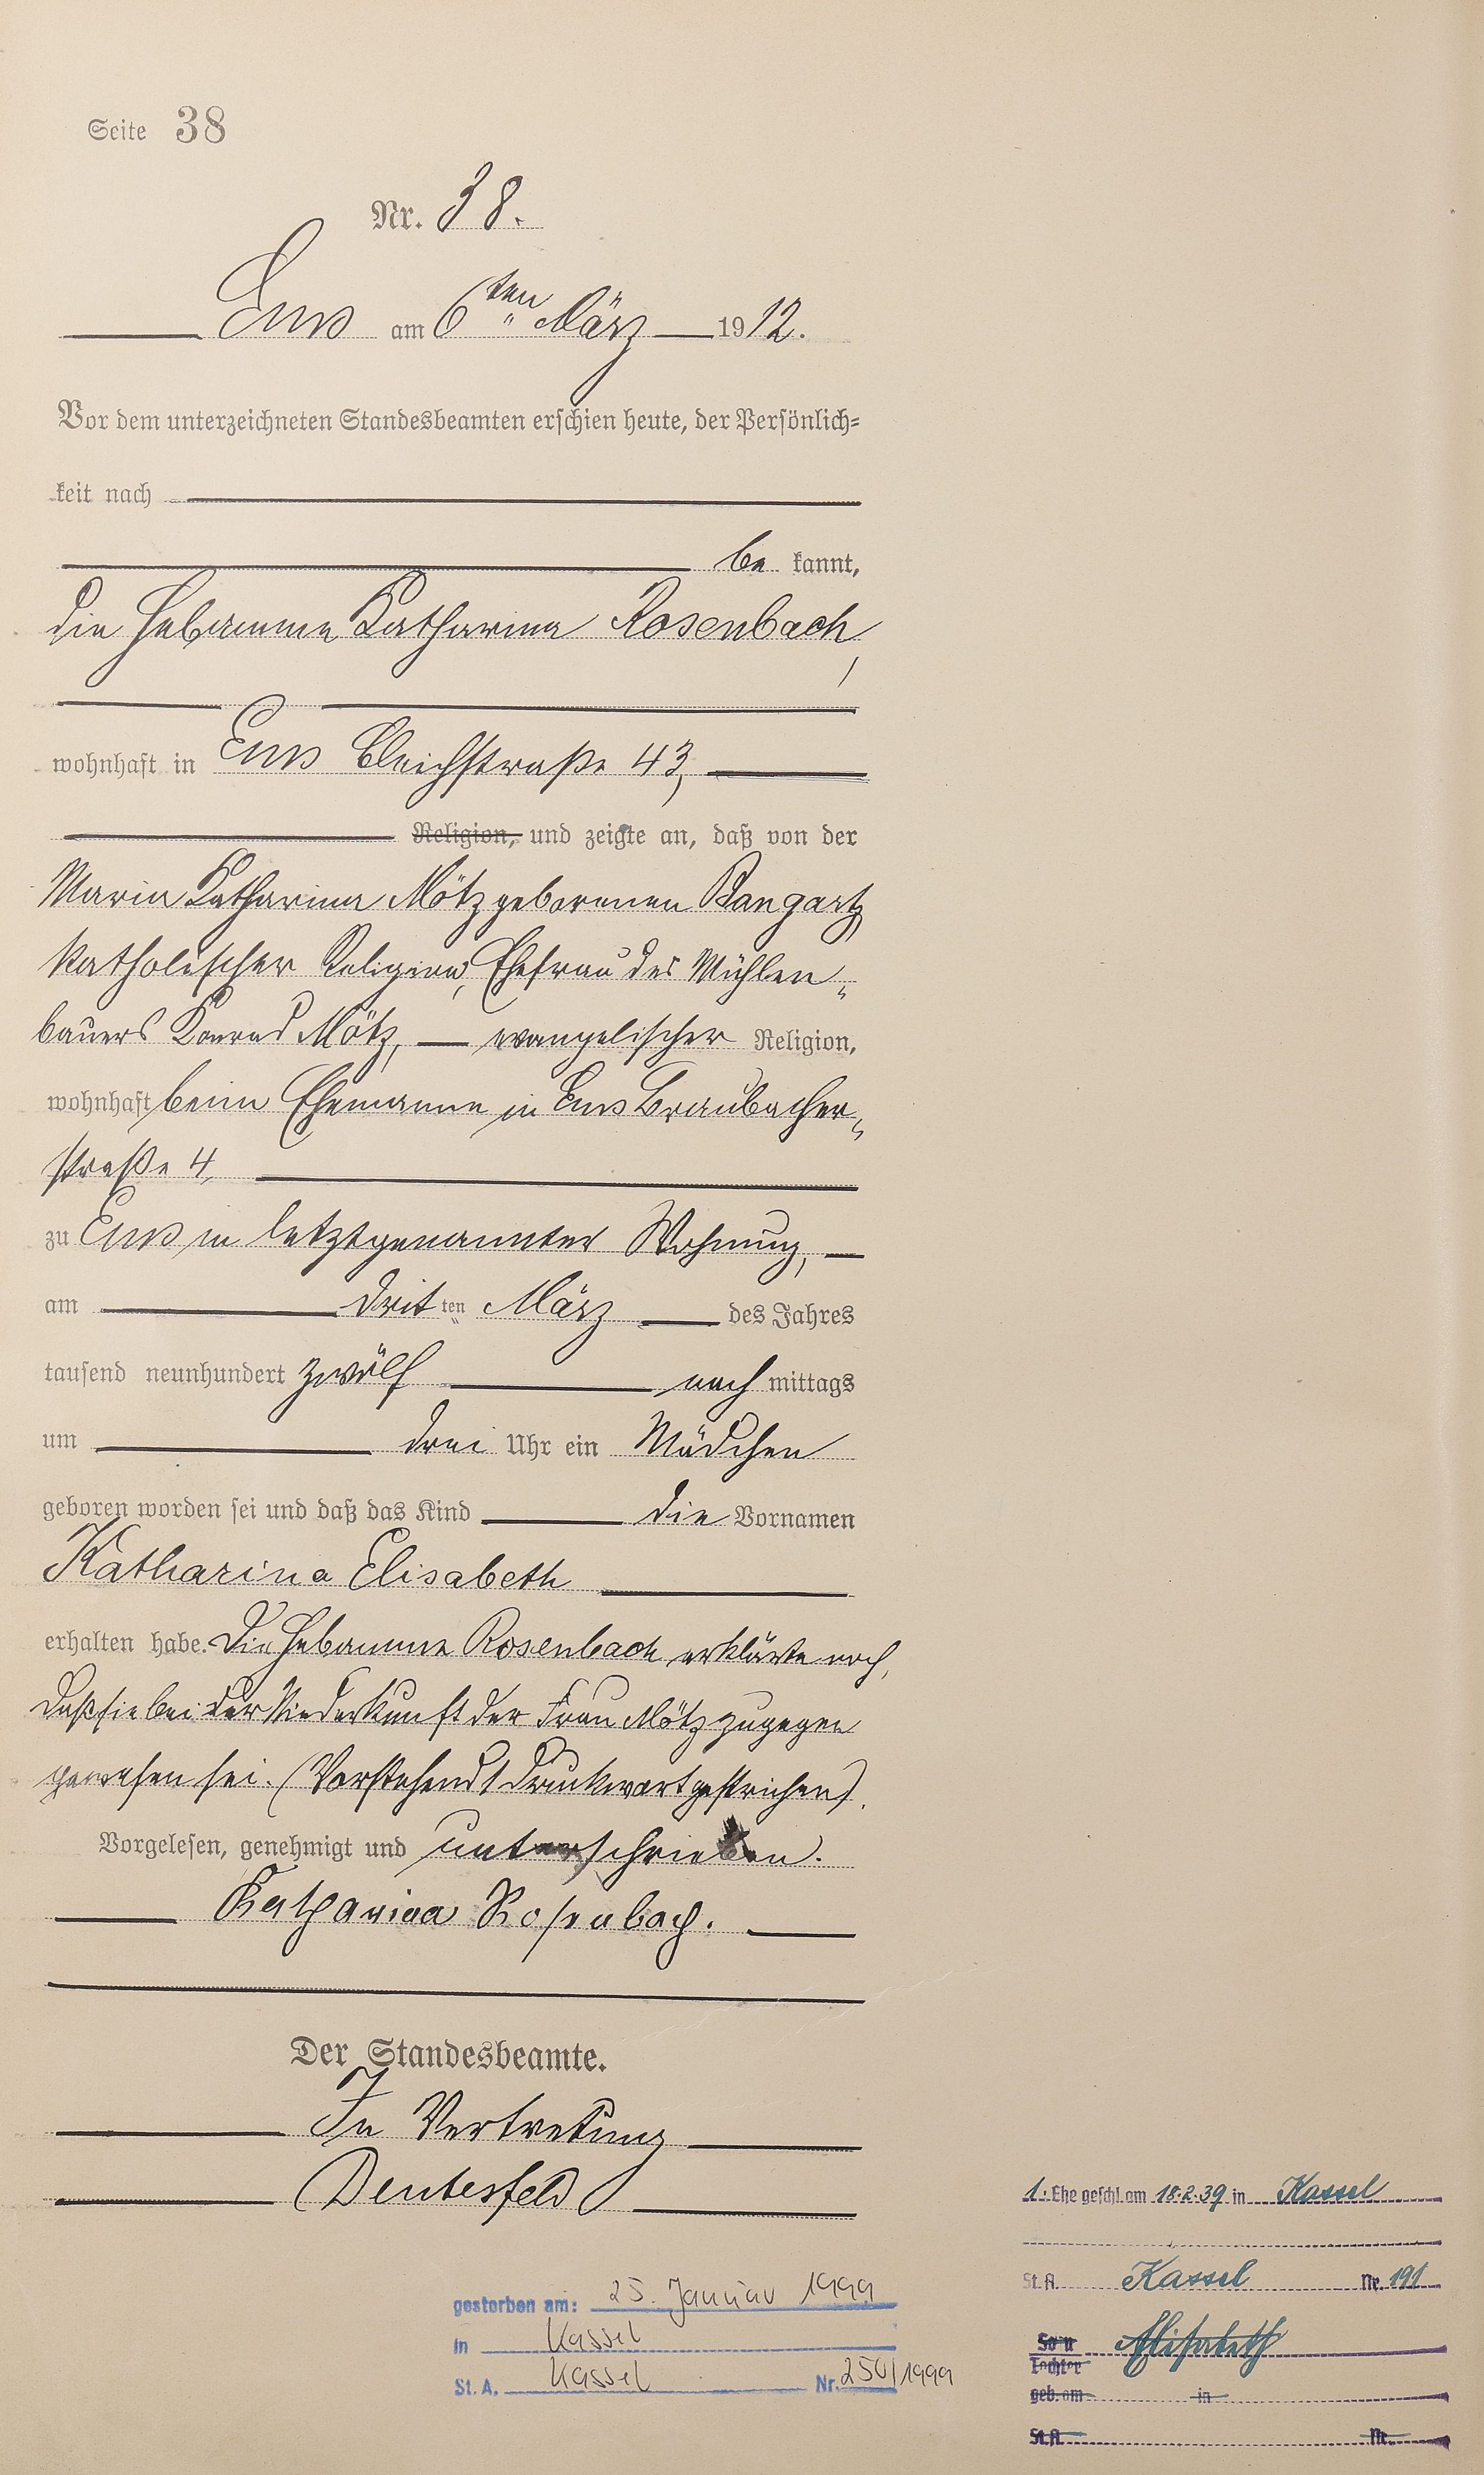 Seite 38
Nr. 38.
Ems am 6ten März 1912.
Vor dem unterzeichneten Standesbeamten erschien heute, der Persönlich-
keit nach
be kannt,
die Hebamme Katharina Rosenbach,
wohnhaft in Ems Bleichstraße 43,
Religion, und zeigte an, daß von der
Maria Katharina Mötz geborenen Bangartz
katholischer Religion, Ehefrau des Mühlen-
bauers Konrad Mötz, evangelischer Religion,
wohnhaft beim Ehemanne in Ems Braubacher-
straße 4,
zu Ems in letztgenannter Wohnung,
am drit ten März des Jahres
tausend neunhundert zwölf nach mittags
um drei Uhr ein Mädchen
geboren worden sei und daß das Kind die Vornamen
Katharina Elisabeth
erhalten habe. Die Hebamme Rosenbach erklärte noch,
daß sie bei der Niederkunft der Frau Mötz zugegen
gewesen sei. (Vorstehend 1 Druckwort gestrichen).
Vorgelesen, genehmigt und unterschrieben.
Katharina Rosenbach.
Der Standesbeamte.
In Vertretung
Deutesfeld
1. Ehe geschl. am 18.2.39 in Kassel
St.A. Kassel Nr. 191
Sohn Elisabeth
Tochter
geb. am in
St.A. Nr.
gestorben am: 25. Januar 1999
in Kassel
St. A. Kassel Nr. 250/1999